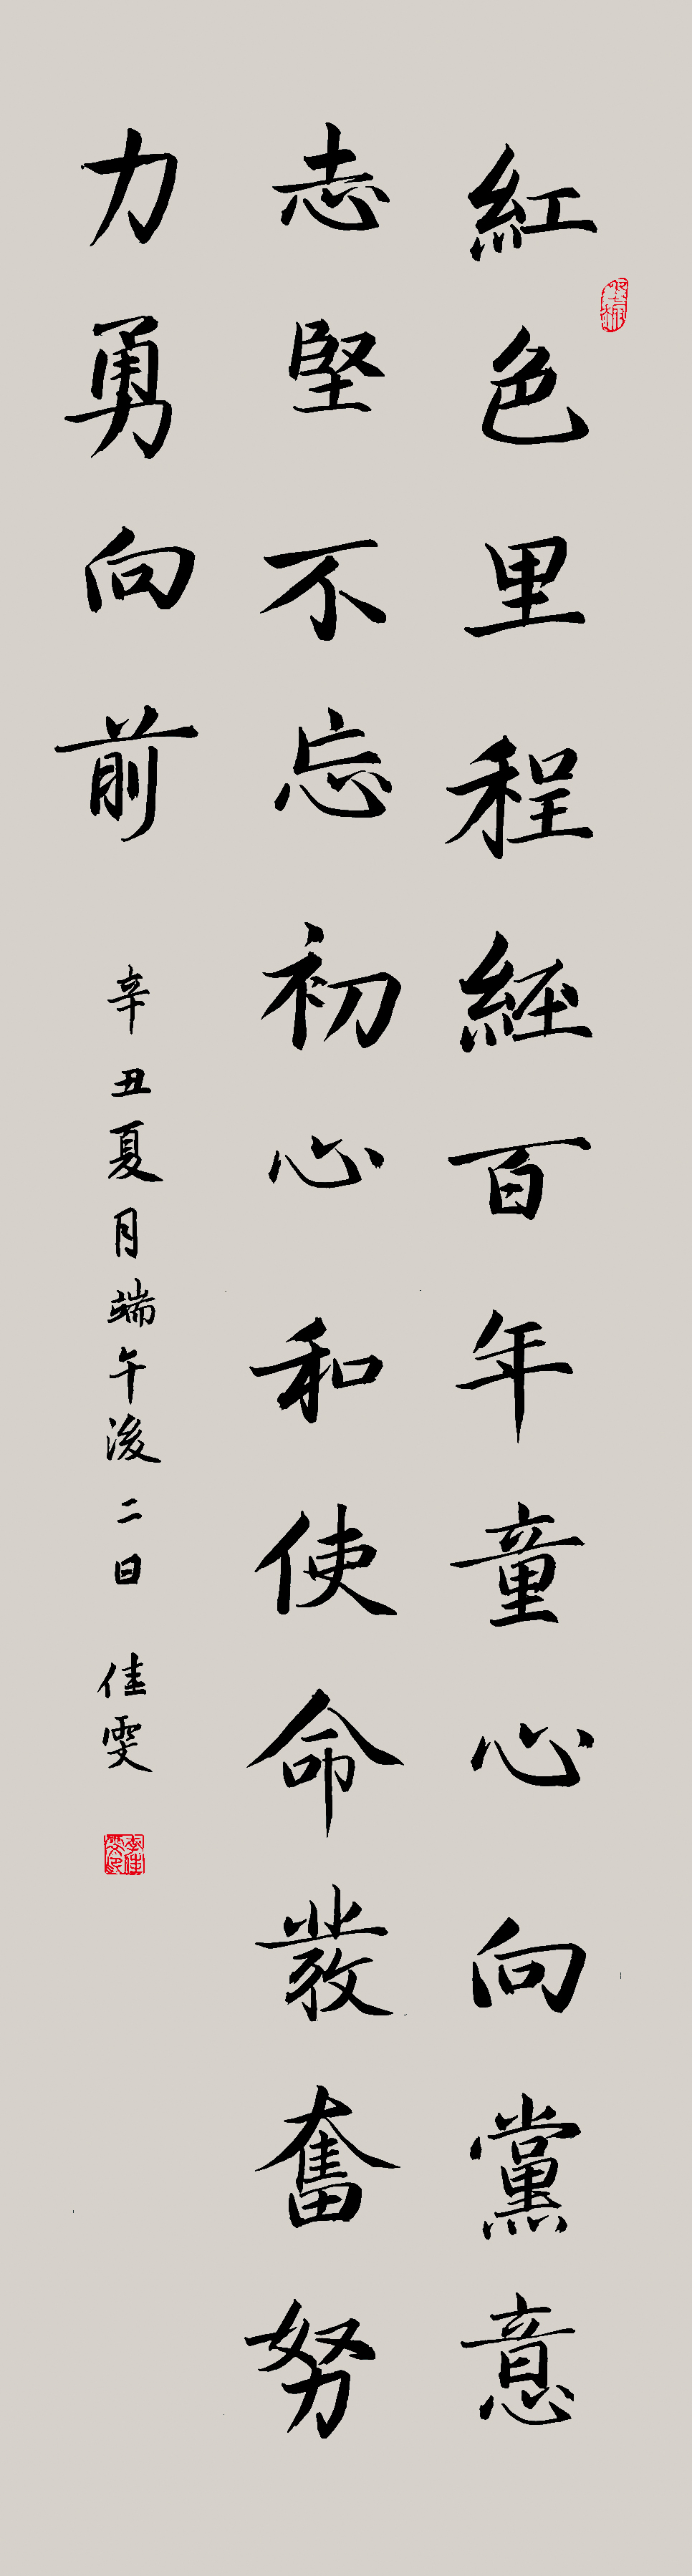 紅色里程經百年童心向黨意
志堅不忘初心和使命發奮努
力勇向前
辛丑夏月端午後二日 佳雯